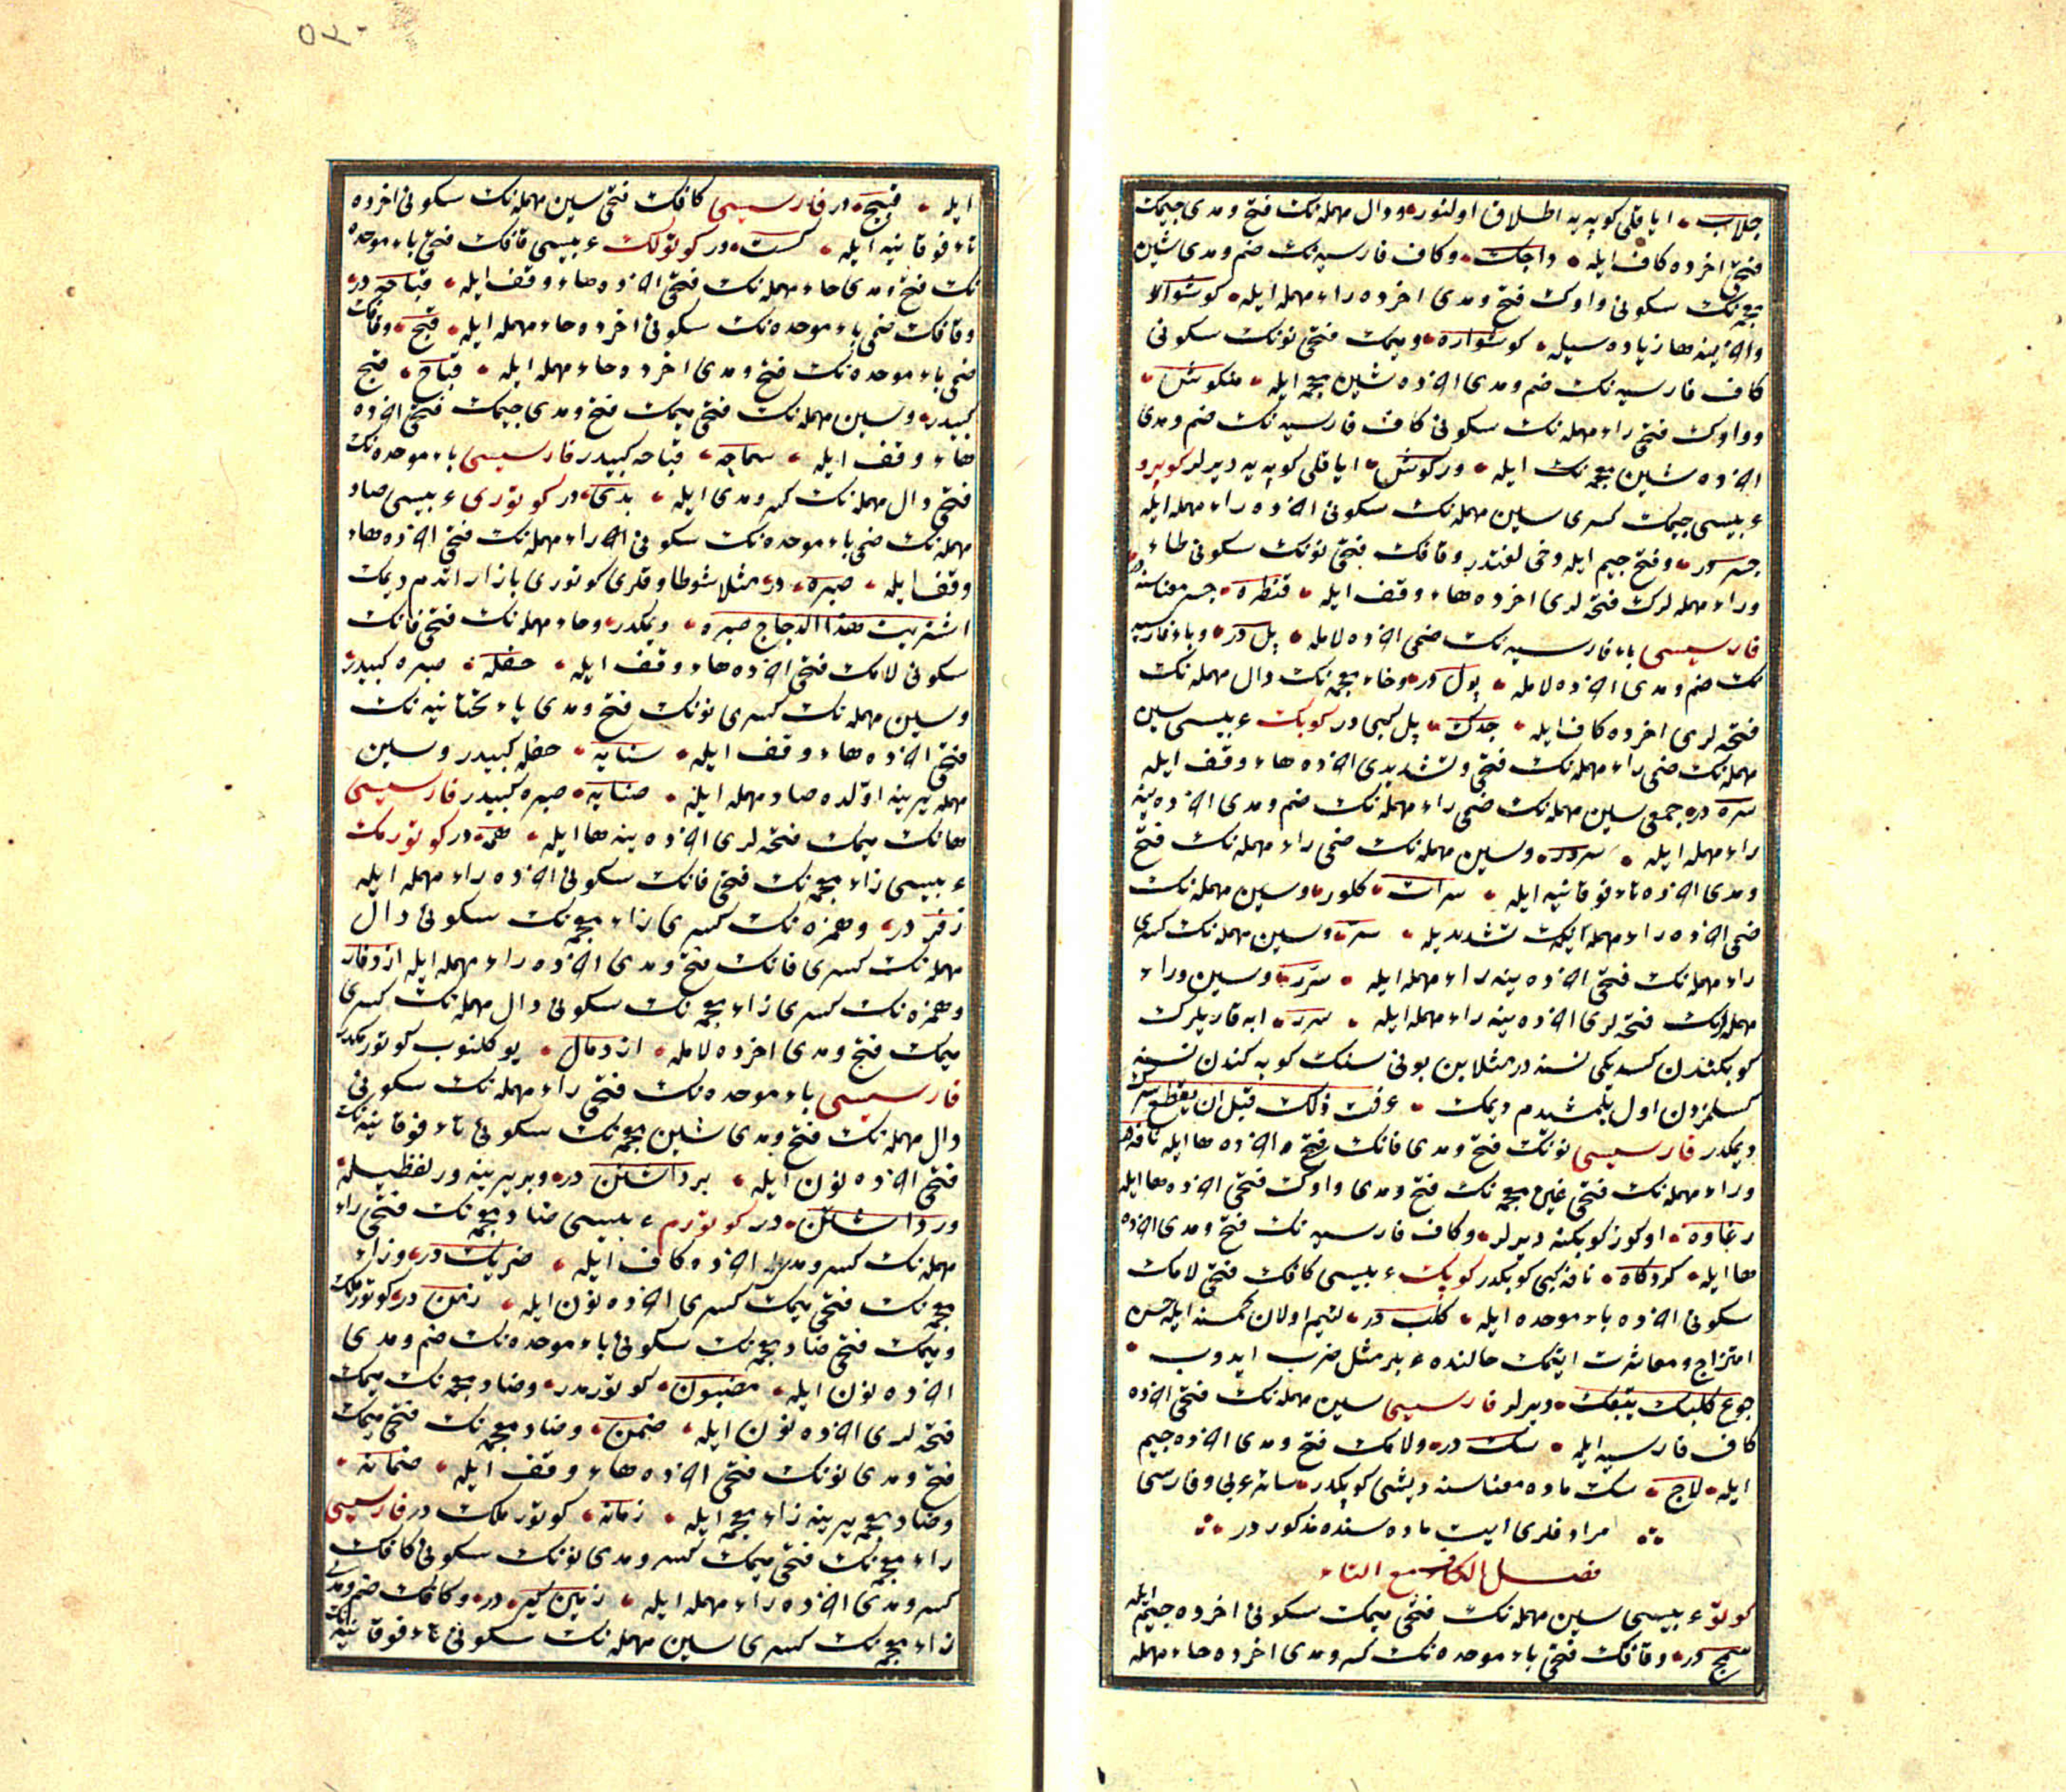 جلاب ایاقلی کوپه یه اطلاق اولنور ودال مهمله نک فتح ومدی جیمک
فتحی اخرده کاف ایله داجک وکاف فارسیه نک ضم ومدی شین
معجمه نک سکونی واوک فتح ومدی اخرده راء مهمله ایله کوشوار
واخرینه ها زیاده سیله کوشواره ومیمک فتحی نونک سکونی
کاف فارسیه نک ضم ومدی اخرده شین معجمه ایله منکوش
وواوک فتحی راء مهمله نک سکونی کاف فارسیه نک ضم ومدی
اخرده شین معجمه نک ایله ورکوش ایاقلی کوپه یه دیرلر کوپرو
عربیسی جیمک کسری سین مهمله نک سکونی اخرده راء مهمله ایله
جسر در وفتح جیم ایله دخی لغتدر وقافک فتحی نونک سکونی طاء
وراء مهمله لرک فتحه لری اخرده هاء وقف ایله قنطره جسر معناسنه
فارسیسی باء فارسیه نک ضمی اخرده لامله پل در وباء فارسیه
نک ضم ومدی اخرده لامله پول در وخاء معجمه نک دال مهمله نک
فتحه لری اخرده کاف ایله خدک پل کبی در کوبک عربیسی سین
مهمله نک ضمی راء مهمله نک فتحی وتشدیدی اخرده هاء وقف ایله
سره در جمعی سین مهمله نک ضمی راء مهمله نک ضم ومدی اخرده ینه
راء مهمله ایله سرور وسین مهمله نک ضمی راء مهمله نک فتح
ومدی اخرده تاء فوقانیه ایله سرات کلور وسین مهمله نک
ضمی اخرده راء مهمله نک تشدیدیله سر وسین مهمله نک کسری
راء مهمله نک فتحی اخرده ینه راء مهمله ایله سرر وسین وراء
مهمله نک فتحه لری اخرده ینه راء مهمله ایله سرر ابه قاریلرک
کوبکندن کسدیکی نسنه در مثلا بن بونی سنک کوبه کندن نسنه
کسلمزدن اول بلمشیدم دیمک عرفت ذلک قبل ان یقطع سرک
دیمکدر فارسیسی نونک فتح ومدی فانک فتح واخرده ها ایله نافه در
وراء مهمله نک فتحی غین معجمه نک فتح ومدی واوک فتحی اخرده ها ایله
رغاوه اوکوز کوبکنه دیرلر وکاف فارسیه نک فتح ومدی اخرده
ها ایله کردکاه نافه کبی کوبکدر کوپک عربیسی کافک فتحی لامک
سکونی اخرده باء موحده ایله کلب در لئیم اولان کمسنه ایله حسن
امتزاج ومعاشرت ایتمک حالنده عربلر مثل ضرب ایدوب
جوع کلبک یتبعک دیرلر فارسیسی سین مهمله نک فتحی اخرده
کاف فارسیه ایله سک در ولامک فتح ومدی اخرده جیم
ایله لاج سک ماده معناسنه دیشی کوپکدر سائر عربی وفارسی
مرادفلری ایت ماده سنده مذکور در
فصل الکاف مع التاء
کوتو عربیسی سین مهمله نک فتحی میمک سکونی اخرده جیم ایله
سمج در وقافک فتحی باء موحده نک کسر ومدی اخرده حاء مهمله
ایله قبیح در فارسیسی کافک فتحی سین مهمله نک سکونی اخرده
تاء فوقانیه ایله کست در کوتولک عربیسی قافک فتحی باء موحده
نک فتح ومدی حاء مهمله نک فتحی اخرده هاء وقف ایله قباحه در
وقافک ضمی باء موحده نک سکونی اخرده حاء مهمله ایله قبح وقافک
ضمی باء موحده نک فتح ومدی اخرده حاء مهمله ایله قباح قبح
کبیدر وسین مهمله نک فتحی میمک فتح ومدی جیمک فتحی اخرده
هاء وقف ایله سماجه قباحه کبیدر فارسیسی باء موحده نک
فتحی دال مهمله نک کسر ومدی ایله بدی در کوتوری عربیسی صاد
مهمله نک ضمی باء موحده نک سکونی اخر راء مهمله نک فتحی اخرده هاء
وقف ایله صبره در مثلا شو طاوقلری کوتوری بازار اتدم دیمک
اشتریت هذا الدجاج صبره دیمکدر وحاء مهمله نک فتحی فانک
سکونی لامک فتحی اخرده هاء وقف ایله حفله صبره کبیدر
وسین مهمله نک کسری نونک فتح ومدی یاء تحتانیه نک
فتحی اخرده هاء وقف ایله سنایه حفله کبیدر وسین
مهمله یرینه اولده صاد مهمله ایله صنایه صبره کبیدر فارسیسی
هانک میمک فتحه لری اخرده ینه ها ایله همه در کوتورمک
عربیسی زاء معجمه نک فتحی فانک سکونی اخرده راء مهمله ایله
زفر در وهمزه نک کسری زاء معجمه نک سکونی دال
مهمله نک کسری فانک فتح ومدی اخرده راء مهمله ایله ازدفار
وهمزه نک کسری زاء معجمه نک سکونی دال مهمله نک کسری
میمک فتح ومدی اخرده لامله ازدمال یوکلنوب کوتورمکدر
فارسیسی باء موحده نک فتحی راء مهمله نک سکونی
دال مهمله نک فتح ومدی شین معجمه نک سکونی تاء فوقانیه نک
فتحی اخرده نون ایله برداشتن در وبر یرینه ور لفظیله
ورداشتن در کوتورم عربیسی ضاد معجمه نک فتحی راء
مهمله نک کسر ومدی اخرده کاف ایله ضریک در وزاء
معجمه نک فتحی میمک کسری اخرده نون ایله زمن در کوتورملک
ومیمک فتحی ضاد معجمه نک سکونی باء موحده نک ضم ومدی
اخرده نون ایله مضبون کوتورمدر وضاد معجمه نک میمک
فتحه لری اخرده نون ایله ضمن وضاد معجمه نک فتحی میمک
فتح ومدی نونک فتحی اخرده هاء وقف ایله ضمانه
وضاد معجمه یرینه زاء معجمه ایله زمانه کوتورملک در فارسیسی
زاء معجمه نک فتحی میمک کسر ومدی نونک سکونی کافک
کسر ومدی اخرده راء مهمله ایله زمین کیر در وکافک ضم ومدی
زاء معجمه نک کسری سین مهمله نک سکونی تاء فوقانیه نک